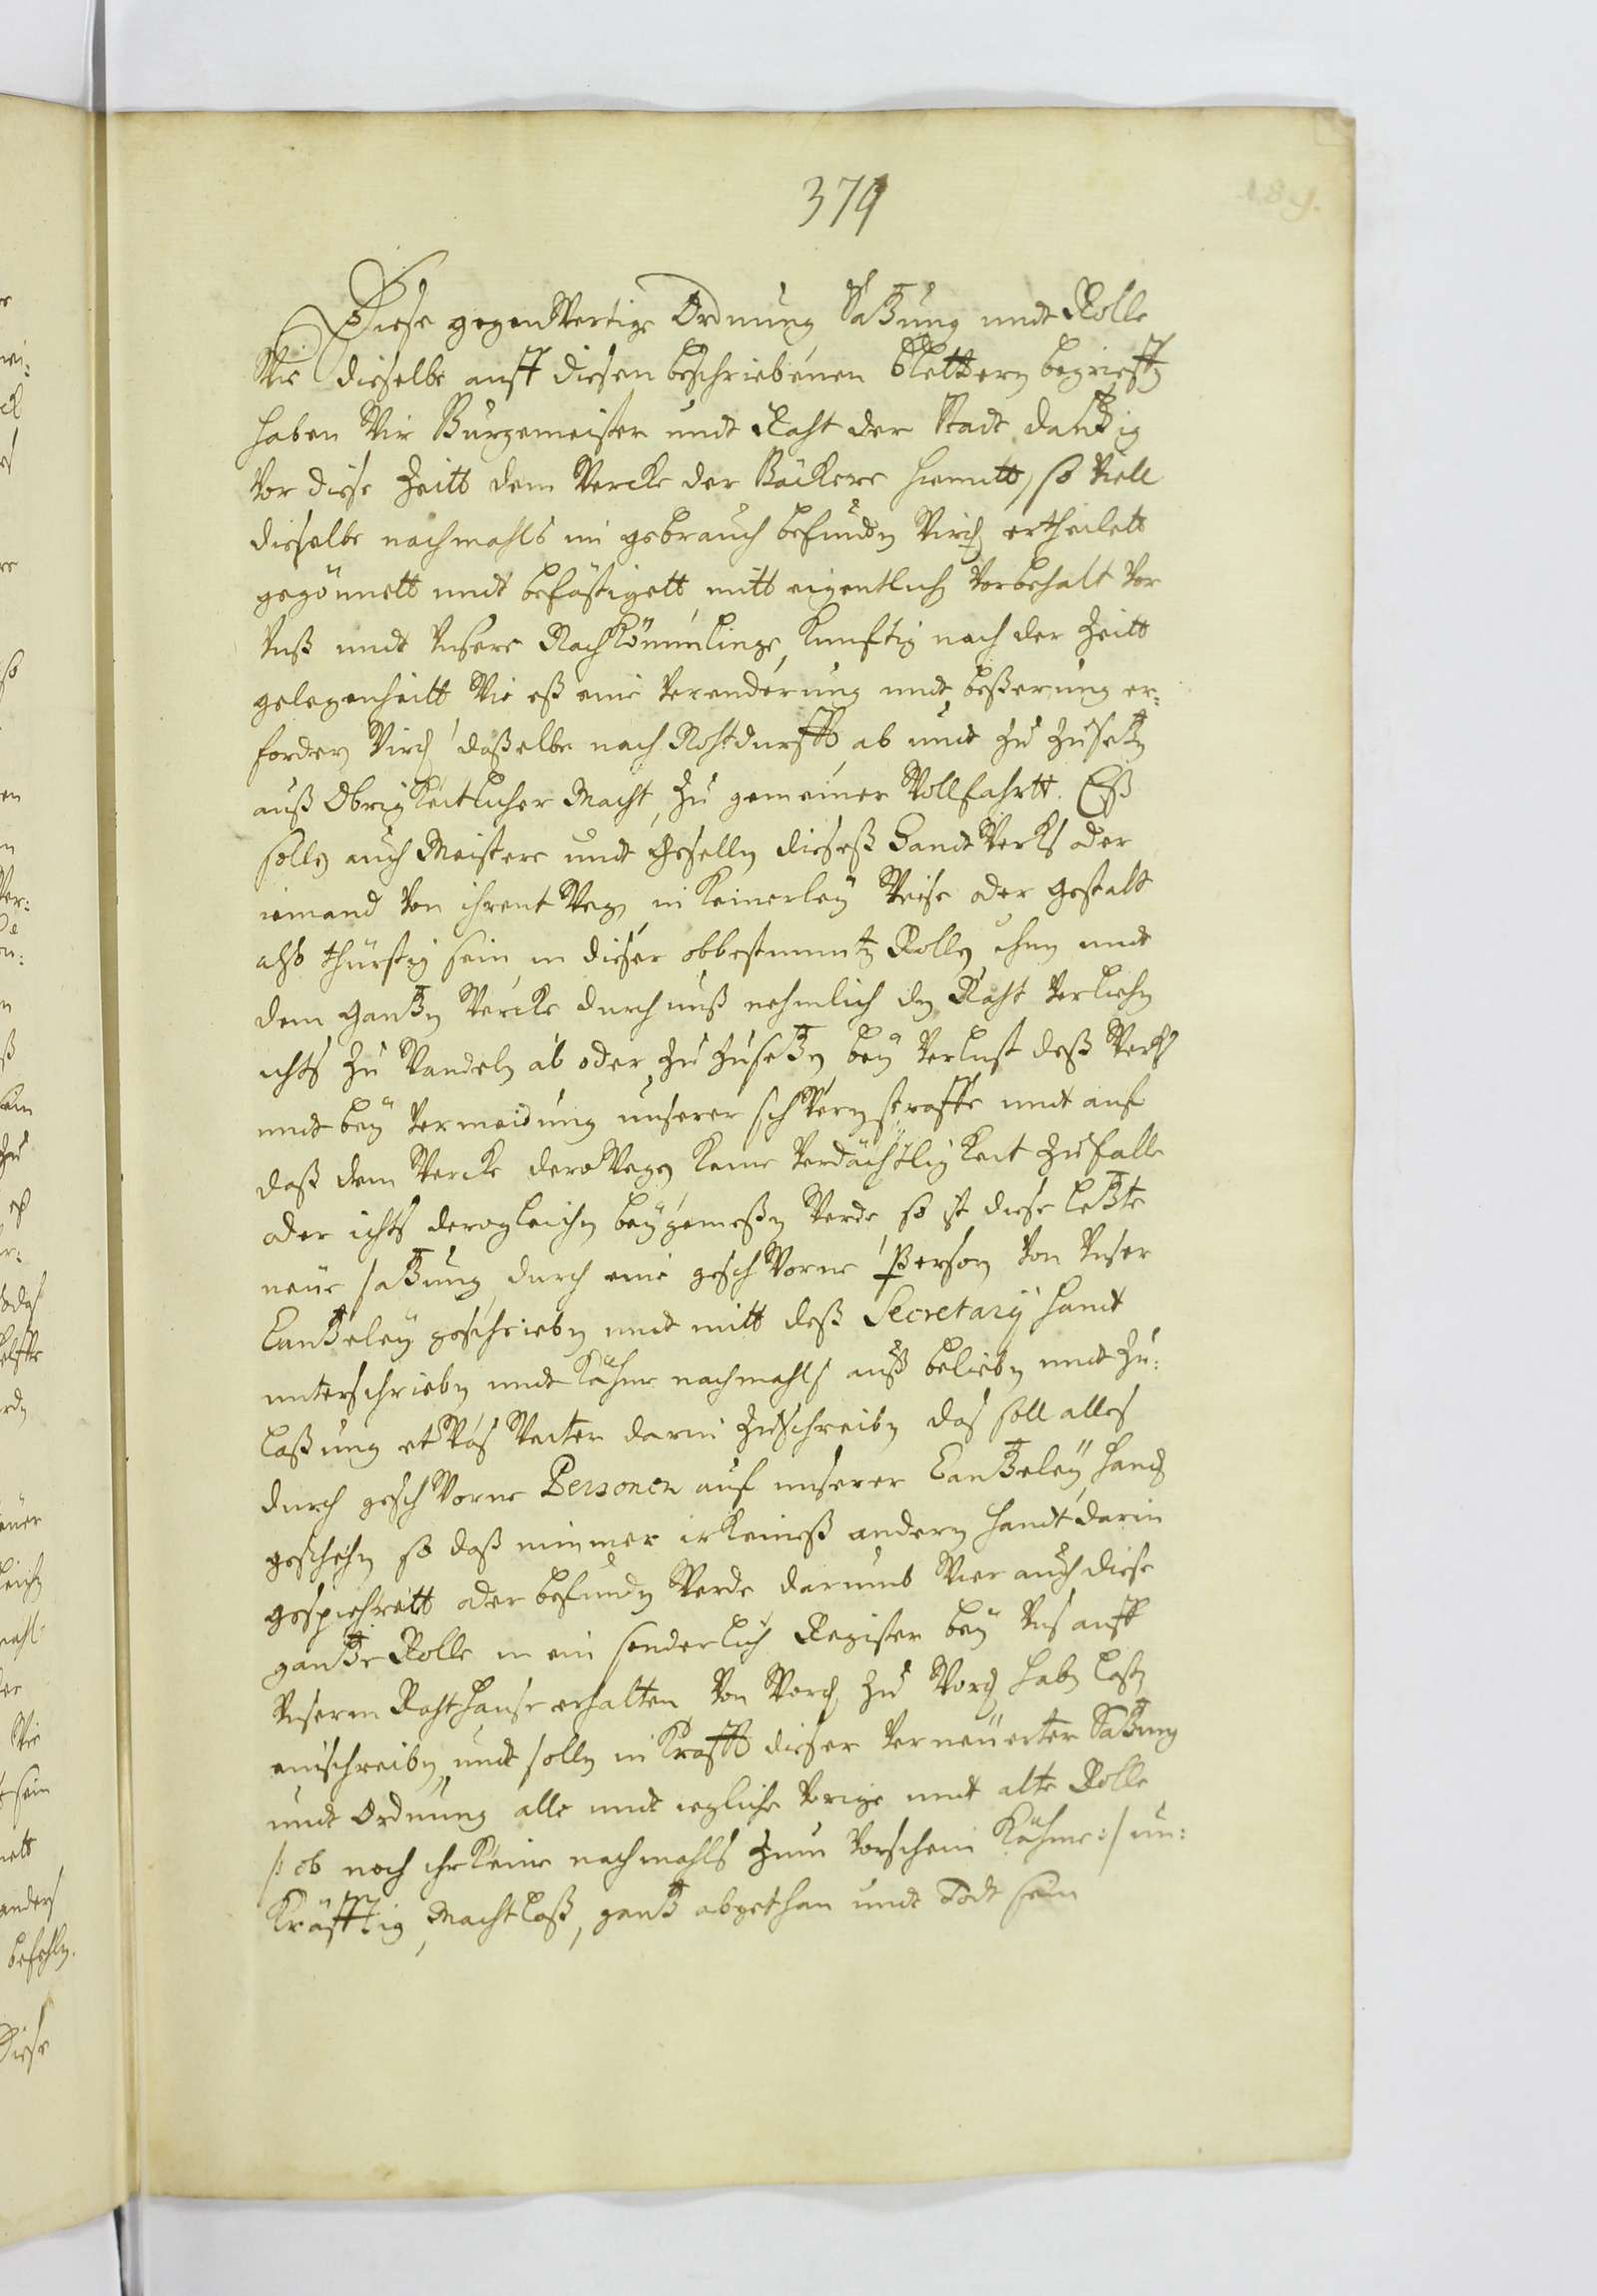 379
Diese gegenWertige Ordnung Satzung undt Rolle
Wie dieselbe auff diesen beschriebenen blettern begriefft
haben Wir Burgemeister undt Raht der Stadt dantzig
Vor diese Zeitt dem Wercke der Bäckere hiemitt, so Viell
dieselbe nachmahls im gebrauch befunden Wird ertheilett
gegönnett undt befästigett mitt eigentlich Vorbehalt Vor
Unß undt Unsere NachKömmlinge, Kunftig nach der Zeitt
gelegenheitt Wie eß eine Verenderung undt beßerung er:
fordern Wird daßelbe nach Nohtdurfft ab undt zu zusetzen
auß ObrigKeitlicher Macht, zu gemeiner Wollfahrtt. Eß
sollen auch Meistere undt Gesellen dieseß HandtWerks oder
iemand Von ihrentWegen in Keinerley Weise oder Gestalt
also thürstig sein in dieser obbestimmten Rollen ihnen undt
dem Gantzen Wercke durch unß nehmlich den Raht Verliehen
ichts zu Wandeln ab oder zu zusetzen bey Verlust deß Werks
undt bey Vermeidung unserer schWeren straffe undt auf
daß dem Wercke deroWegen Keine VerdächtligKeit zufalle
oder ichts derogleichen beygemeßen Werde, so ist diese letzte
neue satzung durch eine geschWorne Person Von Unser
Cantzeley geschrieben undt mitt deß Secretarij handt
unterschrieben undt Kähme nachmahls auß belieben undt zu:
laßung etWas Weiter darin zuschreiben das soll alles
durch geschWorne Personen auf unserer Cantzeley handt
geschehen so daß nimmer irKeineß andern handt darin
gespiehrett oder befunden Werde darumb Wier auch diese
gantze Rolle in ein sonderlich Register bey Uns auff
Unserm Rahthause erhalten Von Word zu Word haben laßen
einschreiben, undt sollen in Krafft dieser Verneuerter Satzung
undt Ordnung alle undt iegliche Vorige undt alte Rolle
/: ob noch ihrKeine nachmahls zum Vorschein Kähme :/ un:
Kräfftig, Machtloß, gantz abgethan undt Todt sein